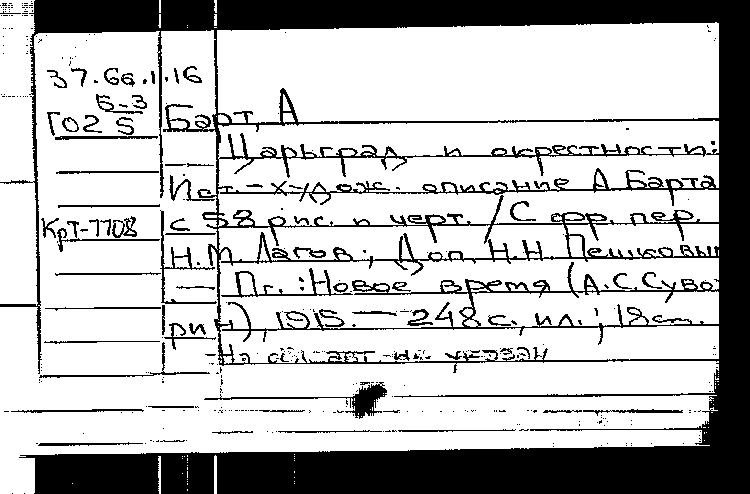 37.66.1.16
Б-3
Г02 5 Барт, А
Царьград и окрестности:
Ист.-худож. описание А. Барта
КрТ-7708 с 58 рис. и черт. / С фр. пер.
Н.М. Лагов; Доп. Н.Н. Пешковым
— Пг.: Новое время (А.С. Суво-
рин), 1915. — 248 с., ил.; 18 см.
На обл. авт. не указан